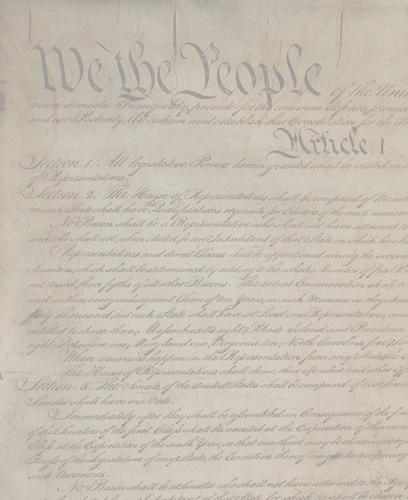 We the People of the Unit
insure domestic Tranquility, provide for the common defence, promo
and our Posterity, do ordain and establish this Constitution for the Uni
Article. I.
Section. 1. All legislative Powers herein granted shall be vested in a
of Representatives.
Section. 2. The House of Representatives shall be composed of Memb
in each State shall have Qualifications requisite for Electors of the most numero
No Person shall be a Representative who shall not have attained to
and who shall not, when elected, be an Inhabitant of that State in which he sha
Representatives and direct Taxes shall be apportioned among the severa
Numbers, which shall be determined by adding to the whole Number of free
not taxed, three fifths of all other Persons. The actual Enumeration shall
and within every subsequent Term of ten Years, in such Manner as they sha
thirty Thousand, but each State shall have at Least one Representative; an
entitled to chuse three, Massachusetts eight, Rhode Island and Providence
eight, Delaware one, Maryland six, Virginia ten, North Carolina five,
When vacancies happen in the Representation from any State,
The House of Representatives shall chuse their Speaker and other
Section. 3. The Senate of the United States shall be composed of two Sena
Senator shall have one Vote.
Immediately after they shall be assembled in Consequence of the
of the Senators of the first Class shall be vacated at the Expiration of the
Class at the Expiration of the sixth Year, so that one third may be chosen every
Recess of the Legislature of any State, the Executive thereof may make temporary
such Vacancies.
No Person shall be a Senator who shall not have attained to the Age